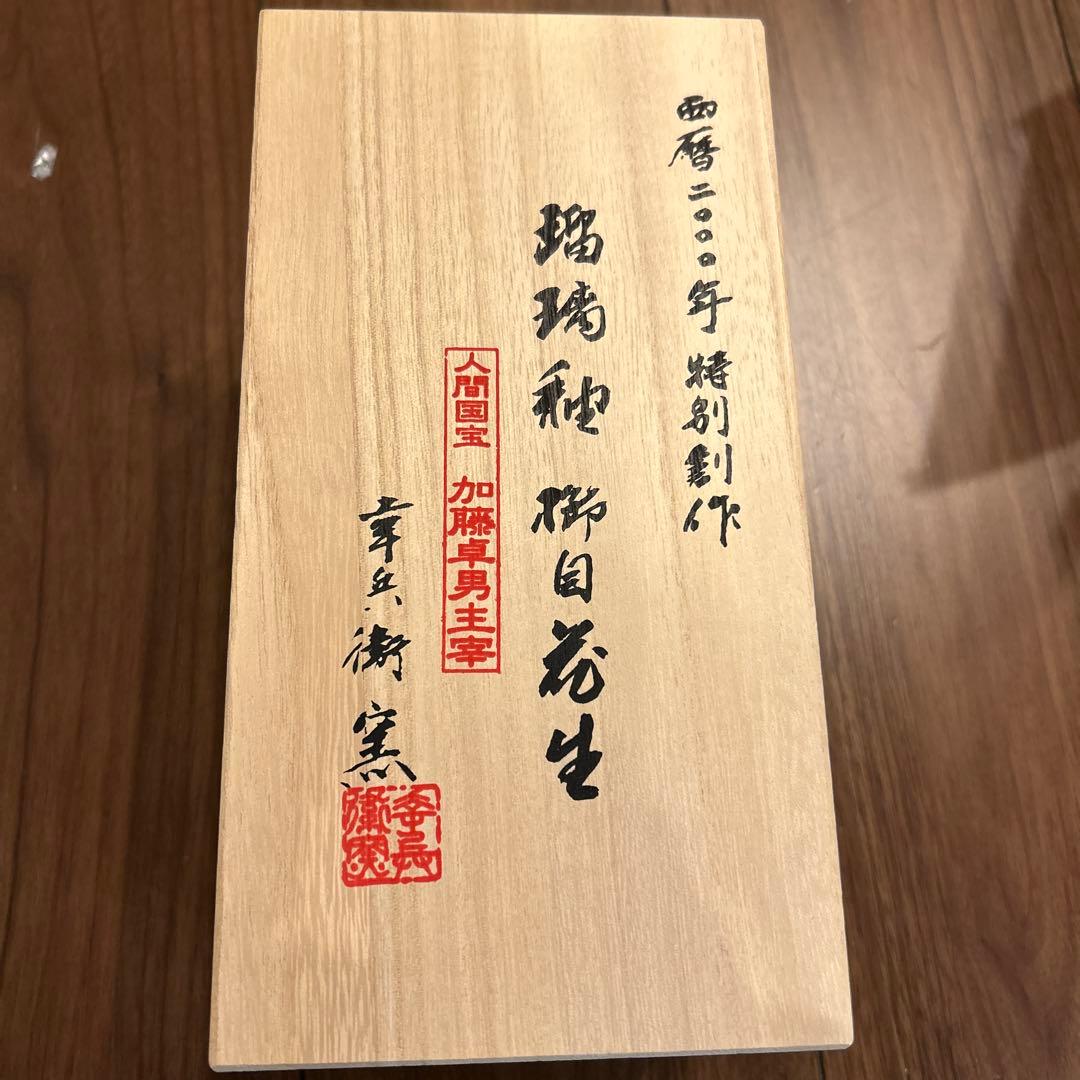 西暦二〇〇〇年 特別創作
瑠璃釉 櫛目花生
人間国宝 加藤卓男主宰
幸兵衛窯